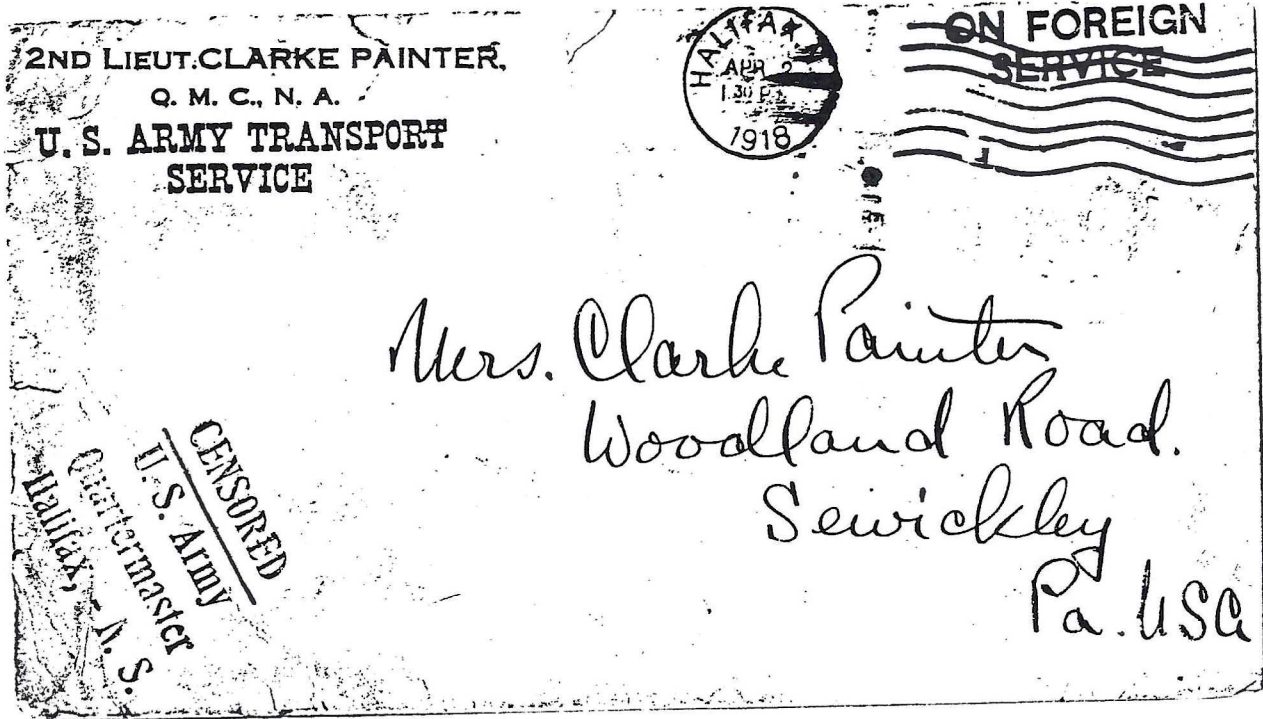 2ND LIEUT. CLARKE PAINTER,
Q. M. C., N. A.
U. S. ARMY TRANSPORT
SERVICE
HALIFAX
APR 2
1.30 P
1918
ON FOREIGN
SERVICE
Mrs. Clarke Painter
Woodland Road.
Sewickley
Pa. USA
CENSORED
U. S. Army
Quartermaster
Halifax, - N. S.